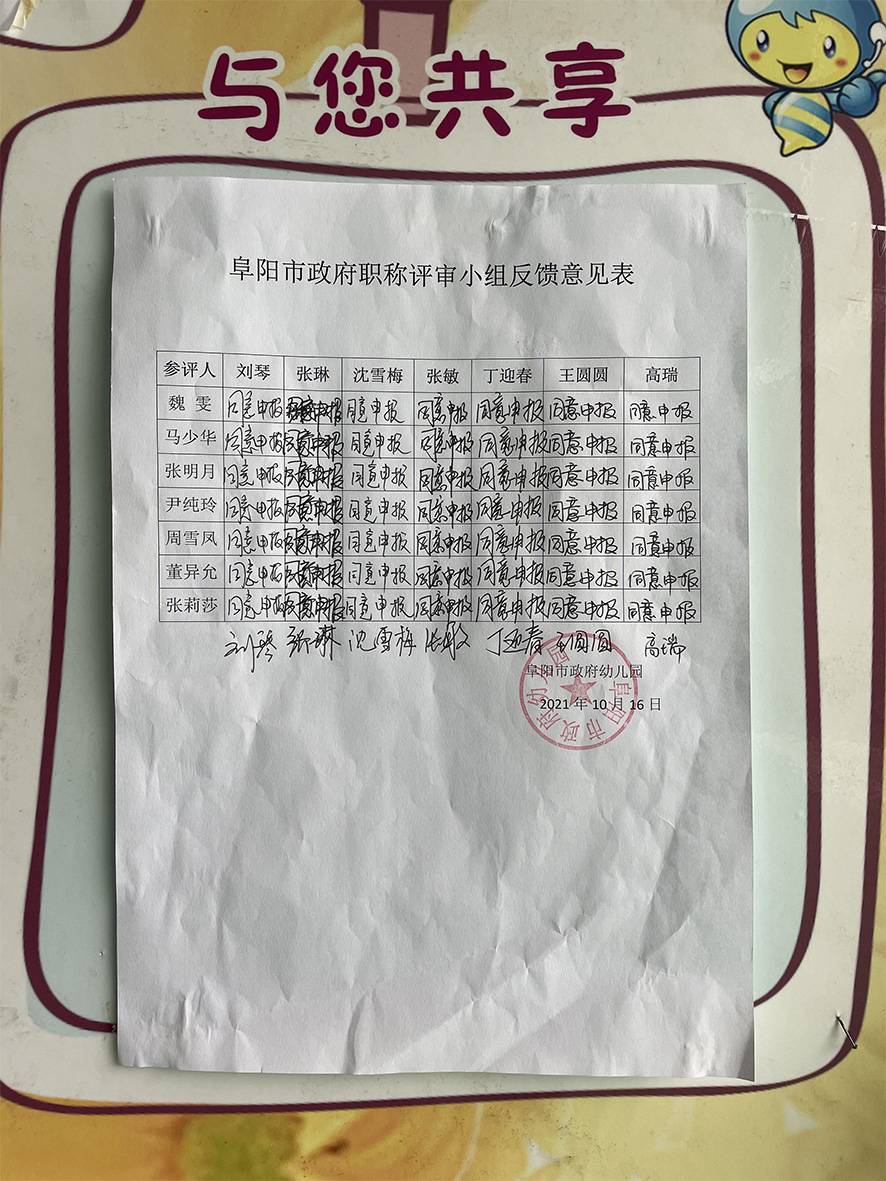 与您共享
阜阳市政府职称评审小组反馈意见表
参评人 刘琴 张琳 沈雪梅 张敏 丁迎春 王圆圆 高瑞
魏 雯 同意申报 同意申报 同意申报 同意申报 同意申报 同意申报 同意申报
马少华 同意申报 同意申报 同意申报 同意申报 同意申报 同意申报 同意申报
张明月 同意申报 同意申报 同意申报 同意申报 同意申报 同意申报 同意申报
尹纯玲 同意申报 同意申报 同意申报 同意申报 同意申报 同意申报 同意申报
周雪凤 同意申报 同意申报 同意申报 同意申报 同意申报 同意申报 同意申报
董异允 同意申报 同意申报 同意申报 同意申报 同意申报 同意申报 同意申报
张莉莎 同意申报 同意申报 同意申报 同意申报 同意申报 同意申报 同意申报
刘琴 张琳 沈雪梅 张敏 丁迎春 王圆圆 高瑞
阜阳市政府幼儿园
2021 年 10 月 16 日
阜阳市政府幼儿园